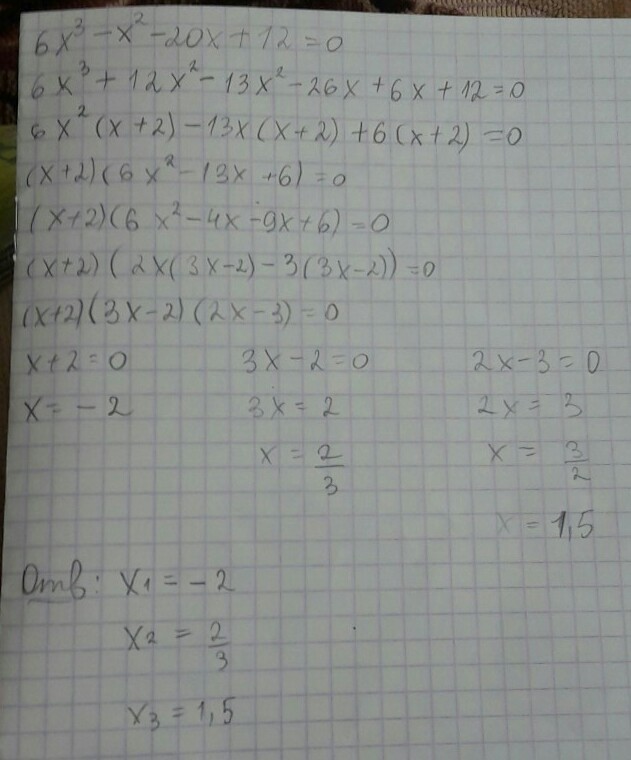 6x³ - x² - 20x + 12 = 0
6x³ + 12x² - 13x² - 26x + 6x + 12 = 0
6x²(x+2) - 13x(x+2) + 6(x+2) = 0
(x+2)(6x² - 13x + 6) = 0
(x+2)(6x² - 4x - 9x + 6) = 0
(x+2)(2x(3x-2) - 3(3x-2)) = 0
(x+2)(3x-2)(2x-3) = 0
x+2 = 0 3x-2 = 0 2x-3 = 0
x = -2 3x = 2 2x = 3
x = 2/3 x = 3/2
x = 1,5
Отв: x₁ = -2
x₂ = 2/3
x₃ = 1,5